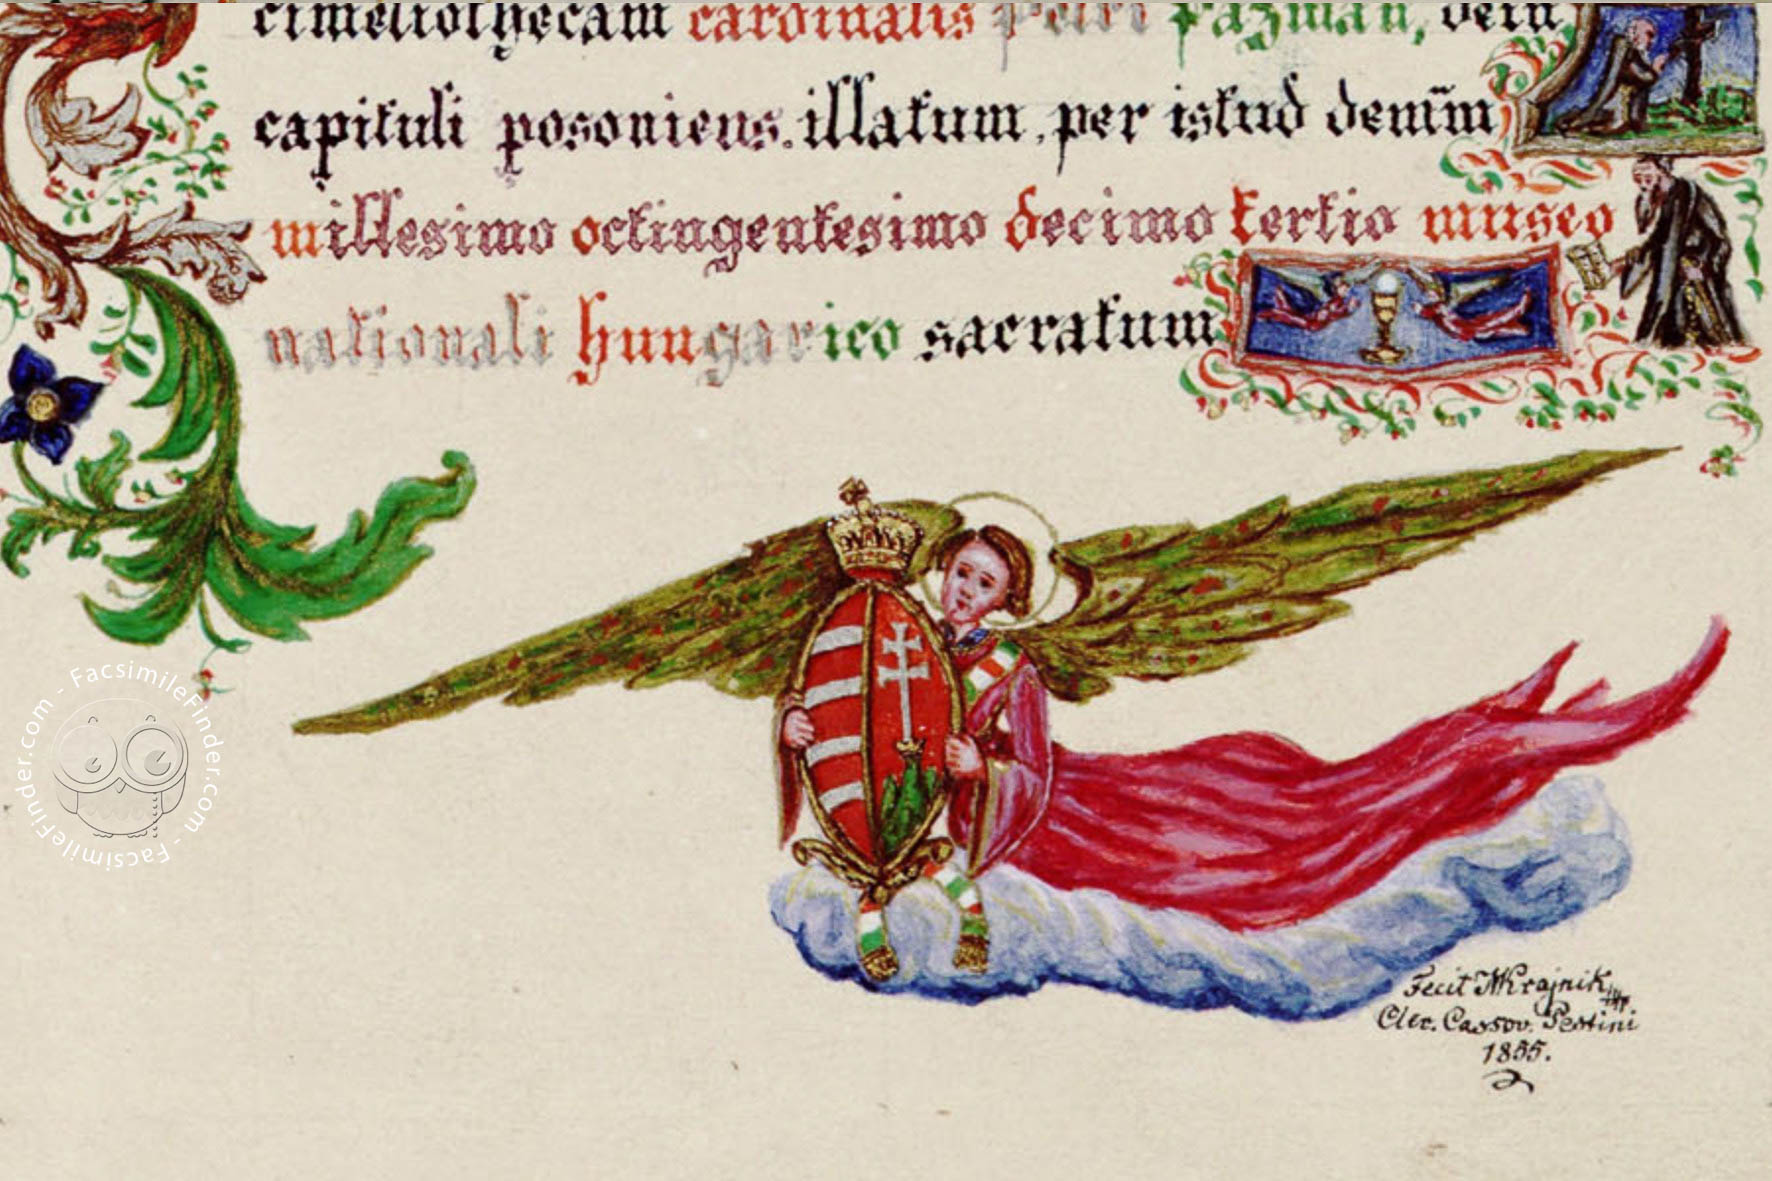 cimeliothecam cardinalis Petri Pazman, dein
capituli posoniens. illatum, per istud denūm
millesimo octingentesimo decimo tertio museo
nationali hungarico sacratum
Fecit Krajnik
Cler. Cassov. Pestini
1855.
FacsimileFinder.com - FacsimileFinder.com -